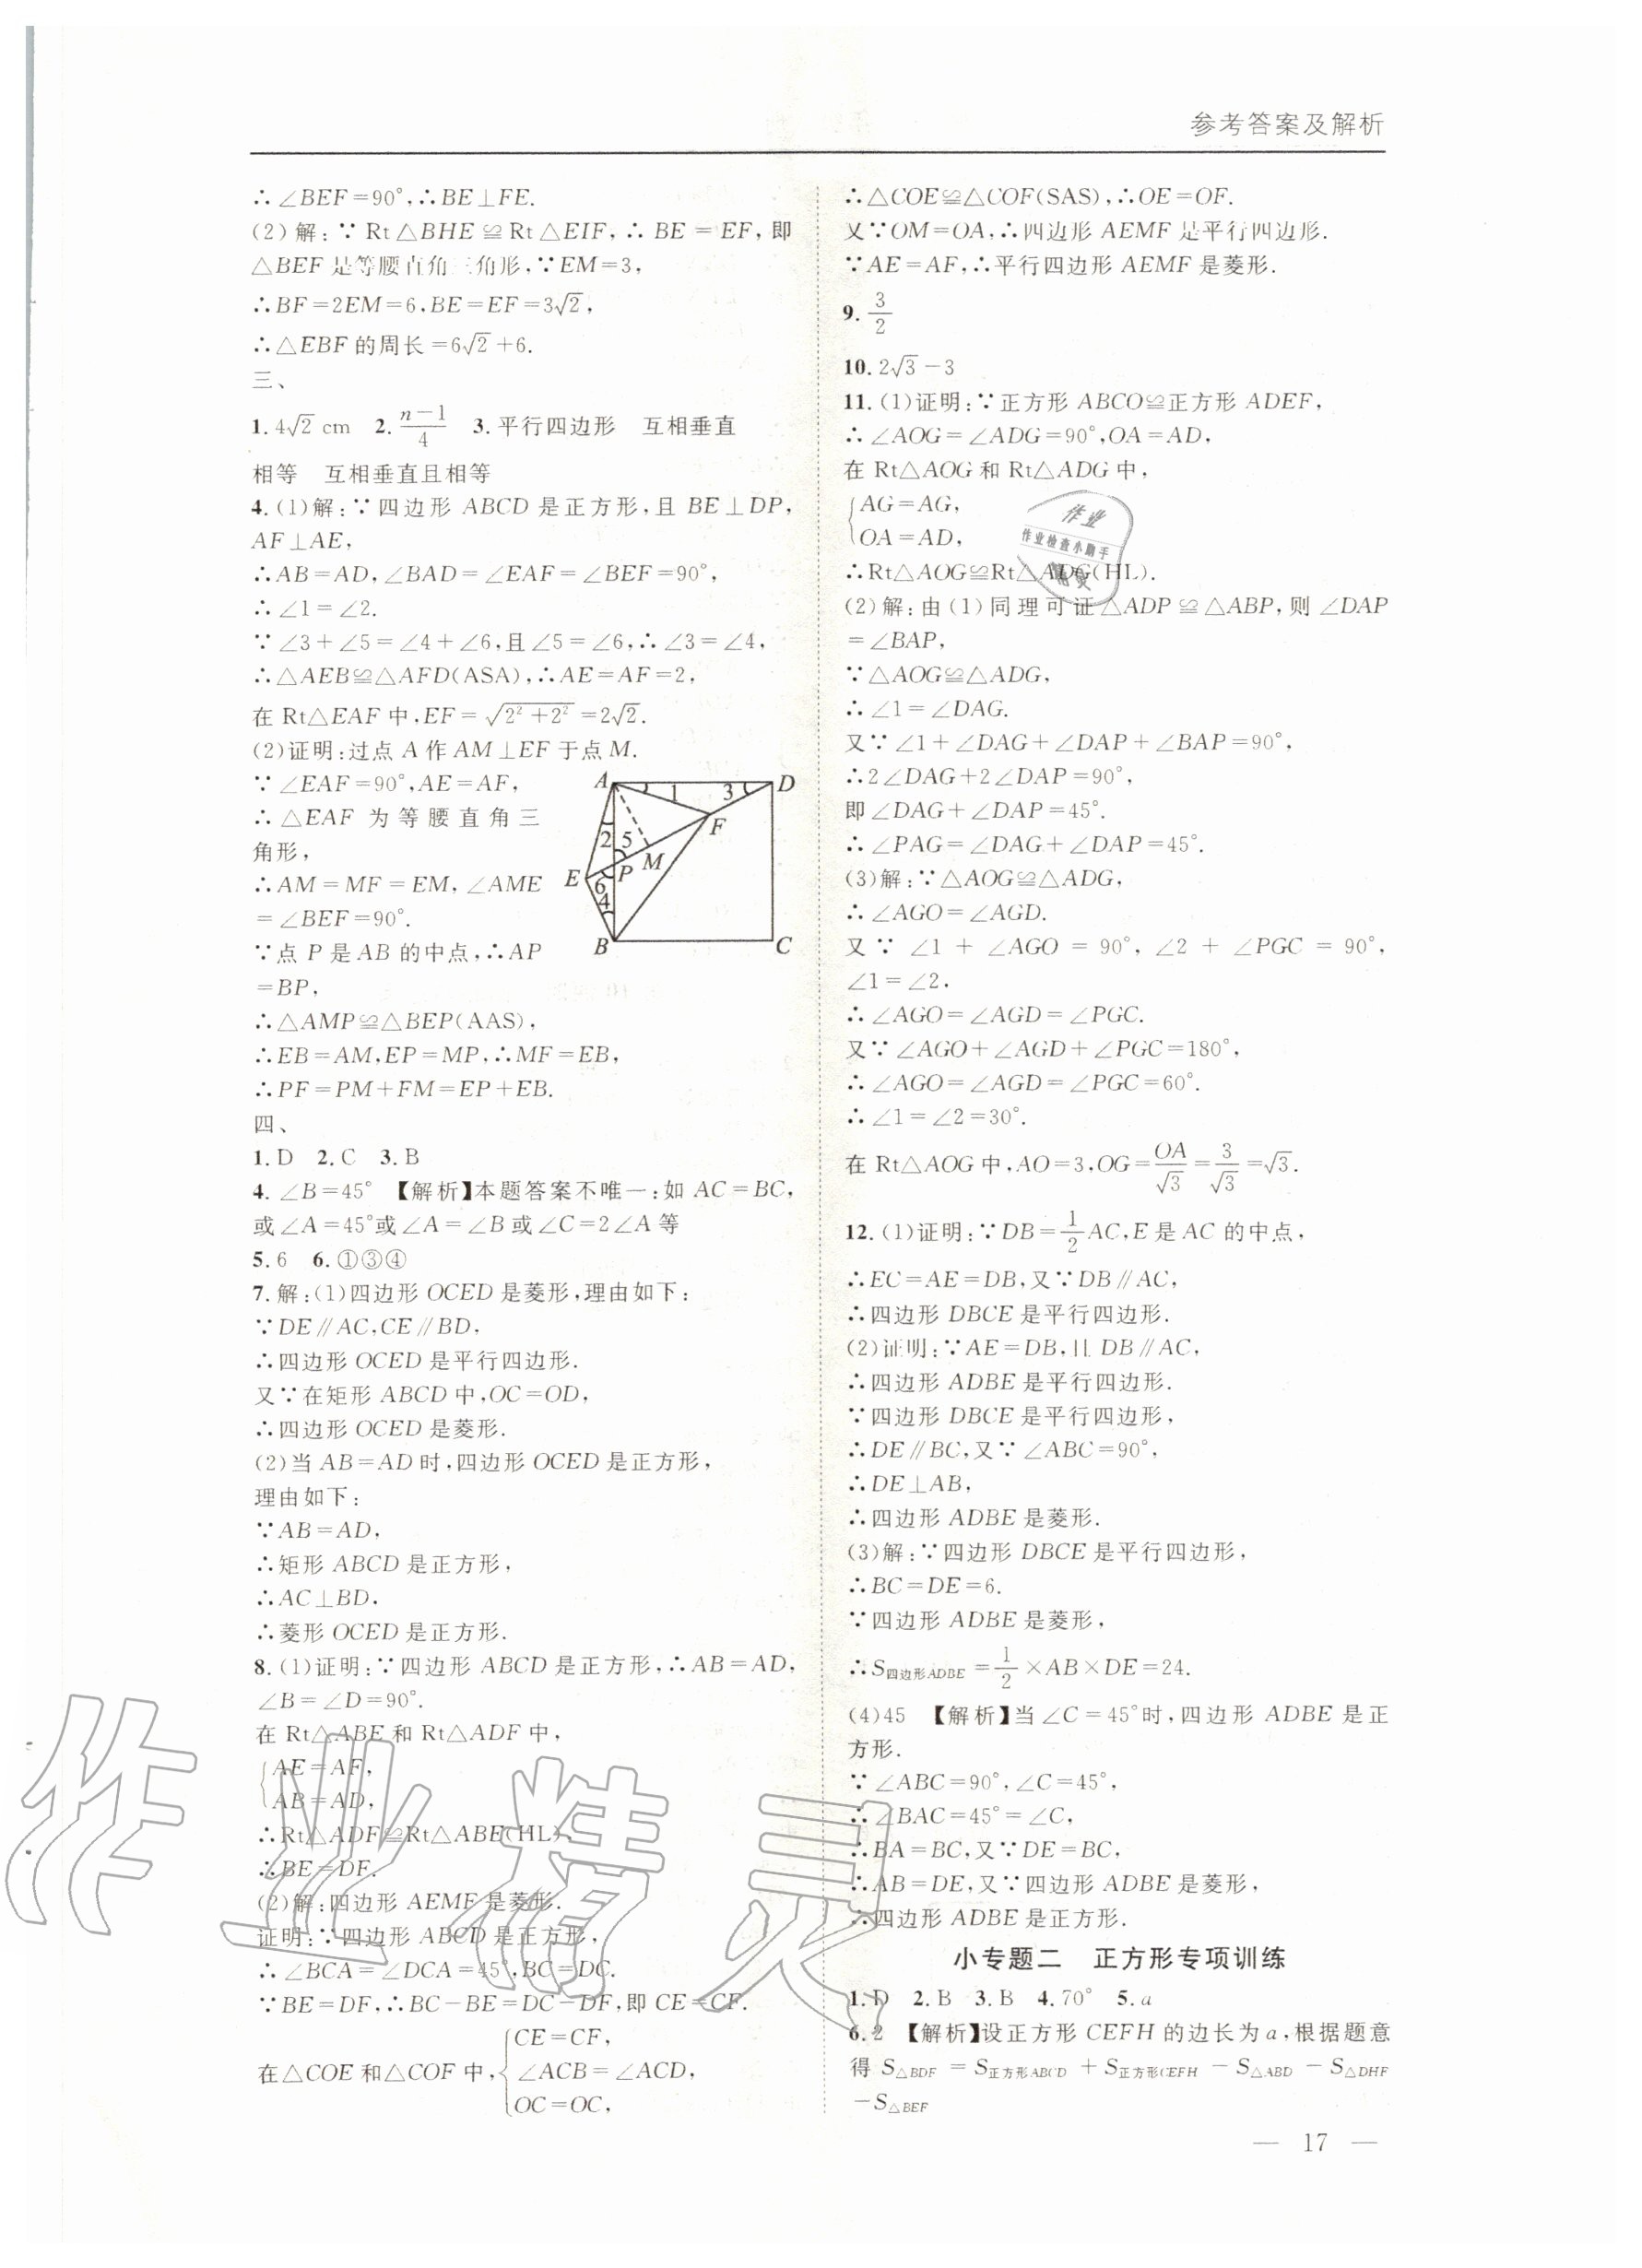 参考答案及解析
∴∠BEF=90°,∴BE⊥FE.
(2)解:∵Rt△BHE≌Rt△EIF,∴BE=EF,即
△BEF是等腰直角三角形,∵EM=3,
∴BF=2EM=6,BE=EF=3√2,
∴△EBF的周长=6√2+6.
三、
1. 4√2 cm 2. (n-1)/4 3. 平行四边形 互相垂直
相等 互相垂直且相等
4. (1)解:∵四边形ABCD是正方形,且BE⊥DP,
AF⊥AE,
∴AB=AD,∠BAD=∠EAF=∠BEF=90°,
∴∠1=∠2.
∵∠3+∠5=∠4+∠6,且∠5=∠6,∴∠3=∠4,
∴△AEB≌△AFD(ASA),∴AE=AF=2,
在Rt△EAF中,EF=√(2²+2²)=2√2.
(2)证明:过点A作AM⊥EF于点M.
∵∠EAF=90°,AE=AF,
∴△EAF为等腰直角三
角形,
∴AM=MF=EM,∠AME
=∠BEF=90°.
∵点P是AB的中点,∴AP
=BP,
A 1 3 D
2 5 F
E 6 P M
4
B C
∴△AMP≌△BEP(AAS),
∴EB=AM,EP=MP,∴MF=EB,
∴PF=PM+FM=EP+EB.
四、
1. D 2. C 3. B
4. ∠B=45° 【解析】本题答案不唯一:如AC=BC,
或∠A=45°或∠A=∠B或∠C=2∠A等
5. 6 6. ①③④
7. 解:(1)四边形OCED是菱形,理由如下:
∵DE∥AC,CE∥BD,
∴四边形OCED是平行四边形.
又∵在矩形ABCD中,OC=OD,
∴四边形OCED是菱形.
(2)当AB=AD时,四边形OCED是正方形,
理由如下:
∵AB=AD,
∴矩形ABCD是正方形,
∴AC⊥BD.
∴菱形OCED是正方形.
8. (1)证明:∵四边形ABCD是正方形,∴AB=AD,
∠B=∠D=90°.
在Rt△ABE和Rt△ADF中,
{AE=AF,
AB=AD,
∴Rt△ADF≌Rt△ABE(HL),
∴BE=DF.
(2)解:四边形AEMF是菱形.
证明:∵四边形ABCD是正方形,
∴∠BCA=∠DCA=45°,BC=DC.
∵BE=DF,∴BC-BE=DC-DF,即CE=CF.
在△COE和△COF中,{CE=CF,
∠ACB=∠ACD,
OC=OC,
∴△COE≌△COF(SAS),∴OE=OF.
又∵OM=OA,∴四边形AEMF是平行四边形.
∵AE=AF,∴平行四边形AEMF是菱形.
9. 3/2
10. 2√3-3
11. (1)证明:∵正方形ABCO≌正方形ADEF,
∴∠AOG=∠ADG=90°,OA=AD,
在Rt△AOG和Rt△ADG中,
{AG=AG,
OA=AD,
∴Rt△AOG≌Rt△ADG(HL).
(2)解:由(1)同理可证△ADP≌△ABP,则∠DAP
=∠BAP,
∵△AOG≌△ADG,
∴∠1=∠DAG.
又∵∠1+∠DAG+∠DAP+∠BAP=90°,
∴2∠DAG+2∠DAP=90°,
即∠DAG+∠DAP=45°.
∴∠PAG=∠DAG+∠DAP=45°.
(3)解:∵△AOG≌△ADG,
∴∠AGO=∠AGD.
又∵∠1+∠AGO=90°,∠2+∠PGC=90°,
∠1=∠2,
∴∠AGO=∠AGD=∠PGC.
又∵∠AGO+∠AGD+∠PGC=180°,
∴∠AGO=∠AGD=∠PGC=60°.
∴∠1=∠2=30°.
在Rt△AOG中,AO=3,OG=OA/√3=3/√3=√3.
12. (1)证明:∵DB=1/2AC,E是AC的中点,
∴EC=AE=DB,又∵DB∥AC,
∴四边形DBCE是平行四边形.
(2)证明:∵AE=DB,且DB∥AC,
∴四边形ADBE是平行四边形.
∵四边形DBCE是平行四边形,
∴DE∥BC,又∵∠ABC=90°,
∴DE⊥AB,
∴四边形ADBE是菱形.
(3)解:∵四边形DBCE是平行四边形,
∴BC=DE=6.
∵四边形ADBE是菱形,
∴S四边形ADBE=1/2×AB×DE=24.
(4)45 【解析】当∠C=45°时,四边形ADBE是正
方形.
∵∠ABC=90°,∠C=45°,
∴∠BAC=45°=∠C,
∴BA=BC,又∵DE=BC,
∴AB=DE,又∵四边形ADBE是菱形,
∴四边形ADBE是正方形.
小专题二 正方形专项训练
1. D 2. B 3. B 4. 70° 5. a
6. 2 【解析】设正方形CEFH的边长为a,根据题意
得S△BDF=S正方形ABCD+S正方形CEFH-S△ABD-S△DHF
-S△BEF
— 17 —
作业
作业检查小助手
作业精灵